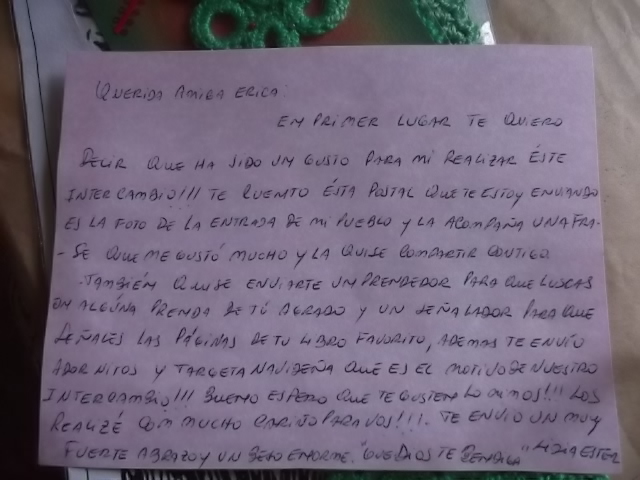 QUERIDA AMIGA ERICA:
EM PRIMER LUGAR TE QUIERO
DECIR QUE HA SIDO UM GUSTO PARA MI REALIZAR ÉSTE
INTERCAMBIO!!! TE CUENTO ÉSTA POSTAL QUE TE ESTOY ENVIANDO
ES LA FOTO DE LA ENTRADA DE MI PUEBLO Y LA ACOMPAÑA UNA FRA-
- SE QUE ME GUSTÓ MUCHO Y LA QUISE COMPARTIR CONTIGO.
TAMBIÉN QUISE ENVIARTE UM PRENDEDOR PARA QUE LUZCAS
EM ALGÚNA PRENDA DE TÚ AGRADO Y UN SEÑALADOR PARA QUE
SEÑALES LAS PÁGINAS DE TU LIBRO FAVORITO, ADEMAS TE ENVÍO
ADORNITOS Y TARGETA NAVIDEÑA QUE ES EL MOTIVO DE NUESTRO
INTERCAMBIO!!! BUENO ESPERO QUE TE GUSTEM !!! LOS
REALIZÉ COM MUCHO CARIÑO PARA VOS!!!. TE ENVIO UN MUY
FUERTE ABRAZO Y UN BESO ENORME. "QUE DIOS TE BENDIGA" ESTER